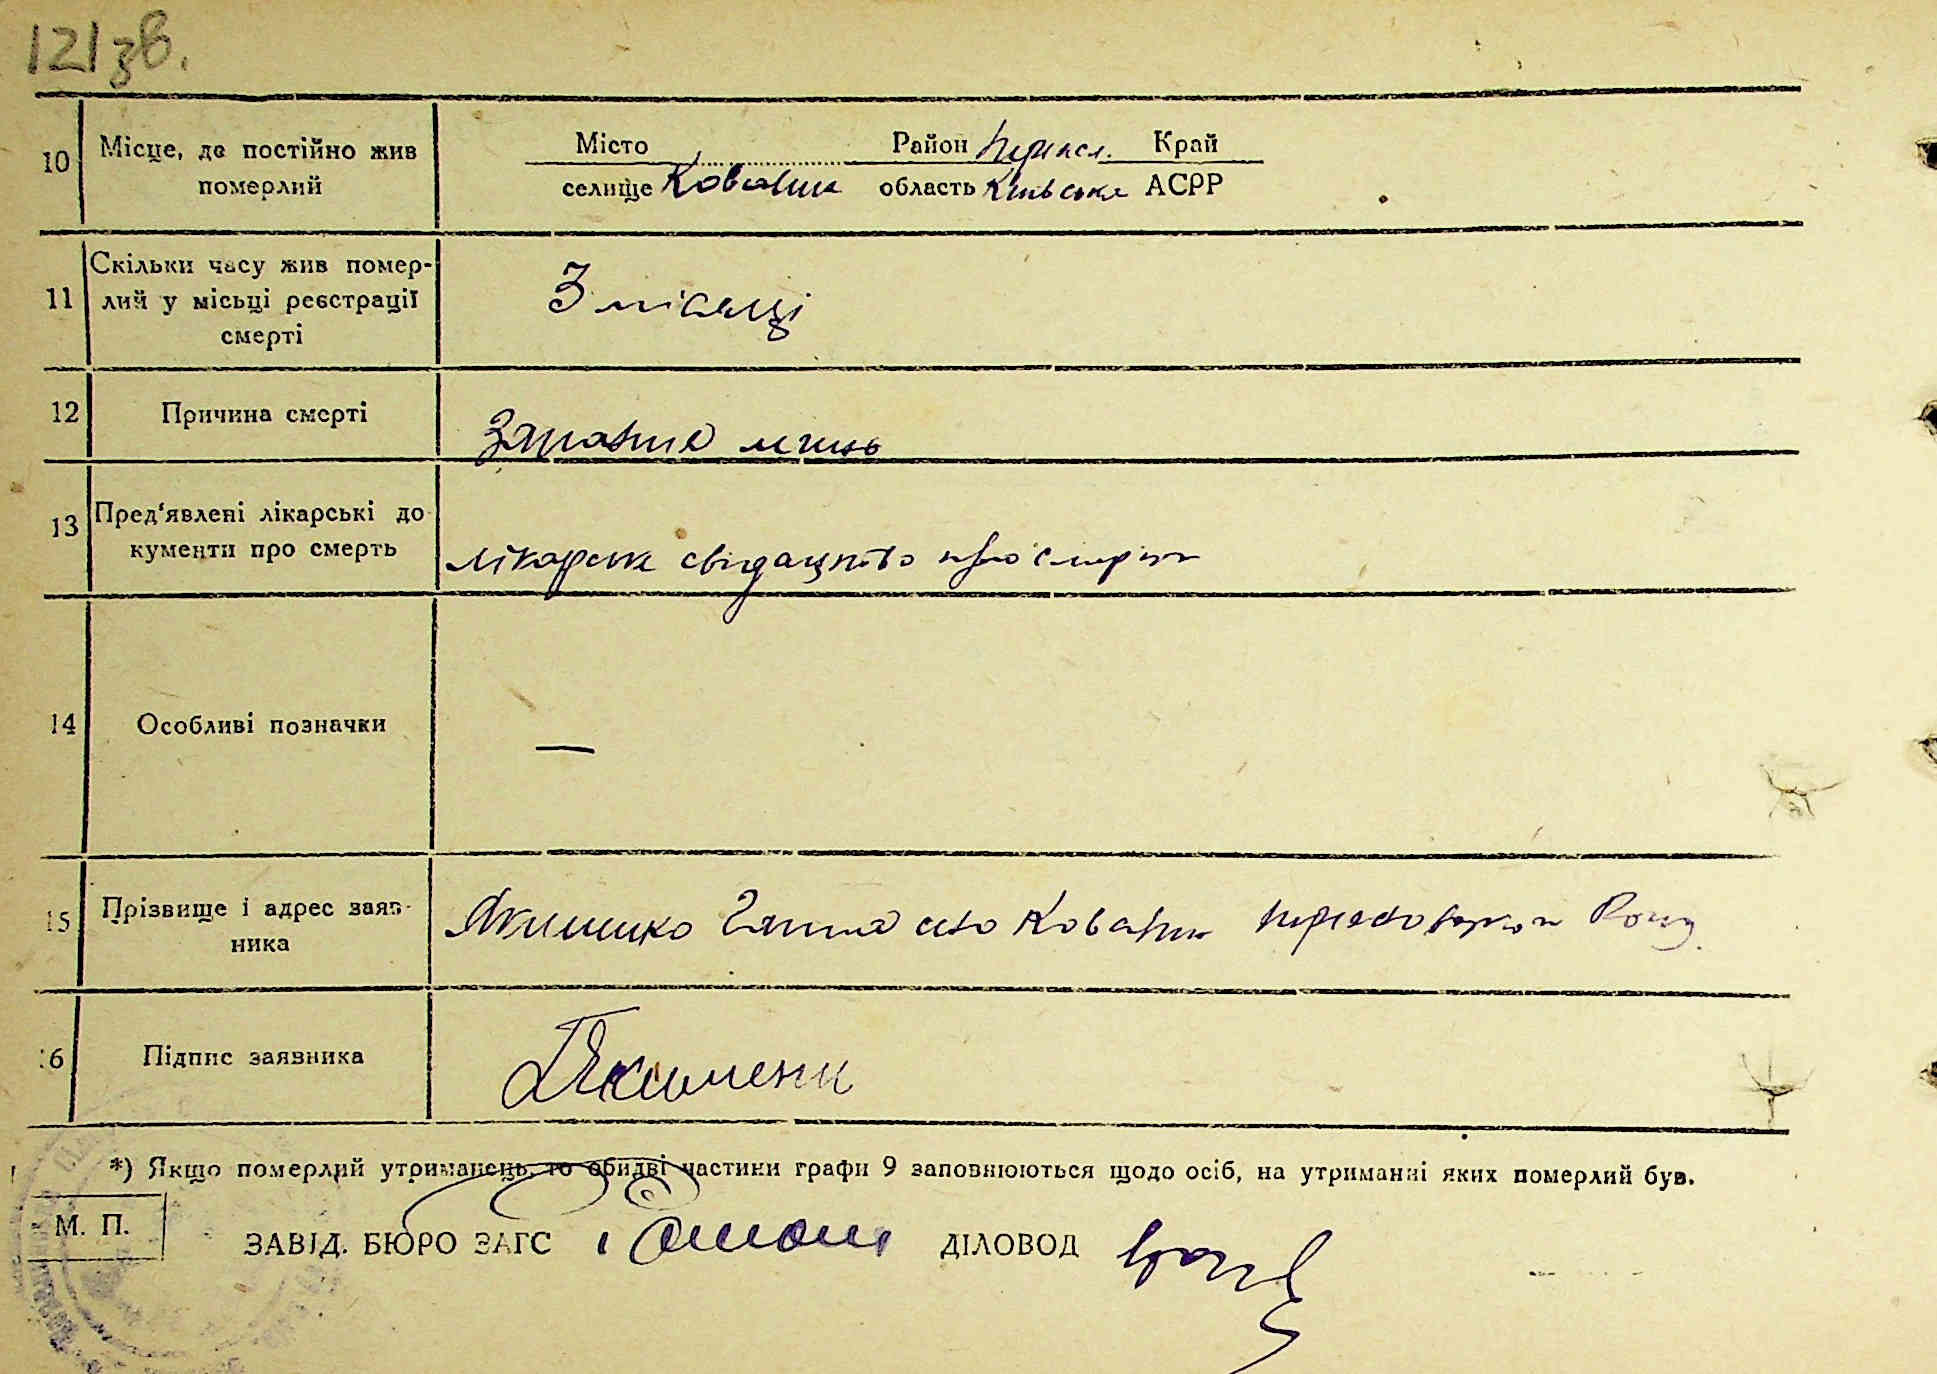 121зв.
10 Місце, де постійно жив померлий
Місто Район Переясл. Край
селище Ковалин область Київська АСРР
11 Скільки часу жив помер-
лий у місьці реєстрації
смерті
3 місяці
12 Причина смерті
Запаленя легень
13 Пред'явлені лікарські до
кументи про смерть
лікарське свідоцтво про смерть
14 Особливі позначки
—
15 Прізвище і адрес заяв-
ника
Якименко Ганна село Ковалин
16 Підпис заявника
Якименко
*) Якщо померлий утриманець, то обидві частини графи 9 заповнюються щодо осіб, на утриманні яких померлий був.
М. П.
ЗАВІД. БЮРО ЗАГС ДІЛОВОД